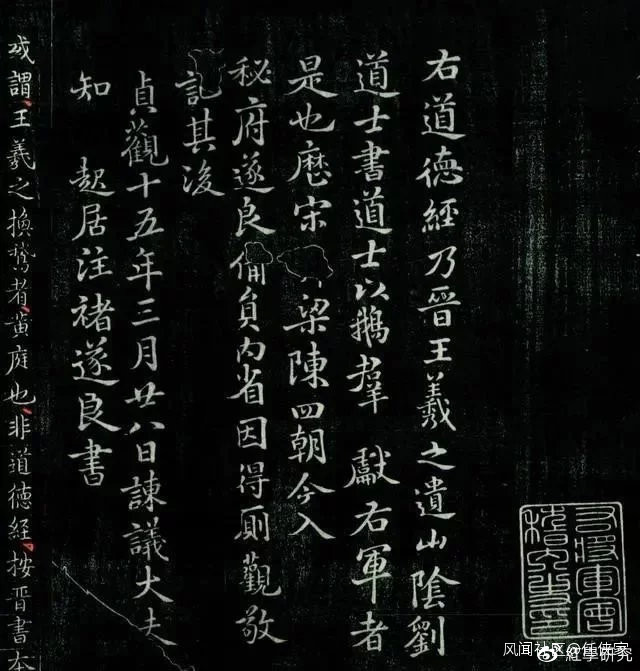 右道德經乃晉王羲之遺山陰劉
道士書道士以鵝羣 獻右軍者
是也歷宋 梁陳四朝今入
秘府遂良俻員內省因得厠觀敬
記其後
貞觀十五年三月廿八日諫議大夫
知 起居注褚遂良書
或謂王羲之換鵞者黃庭也非道德經按晉書本
右將軍會稽內史印
风闻社区@任侠客
@紅學研究